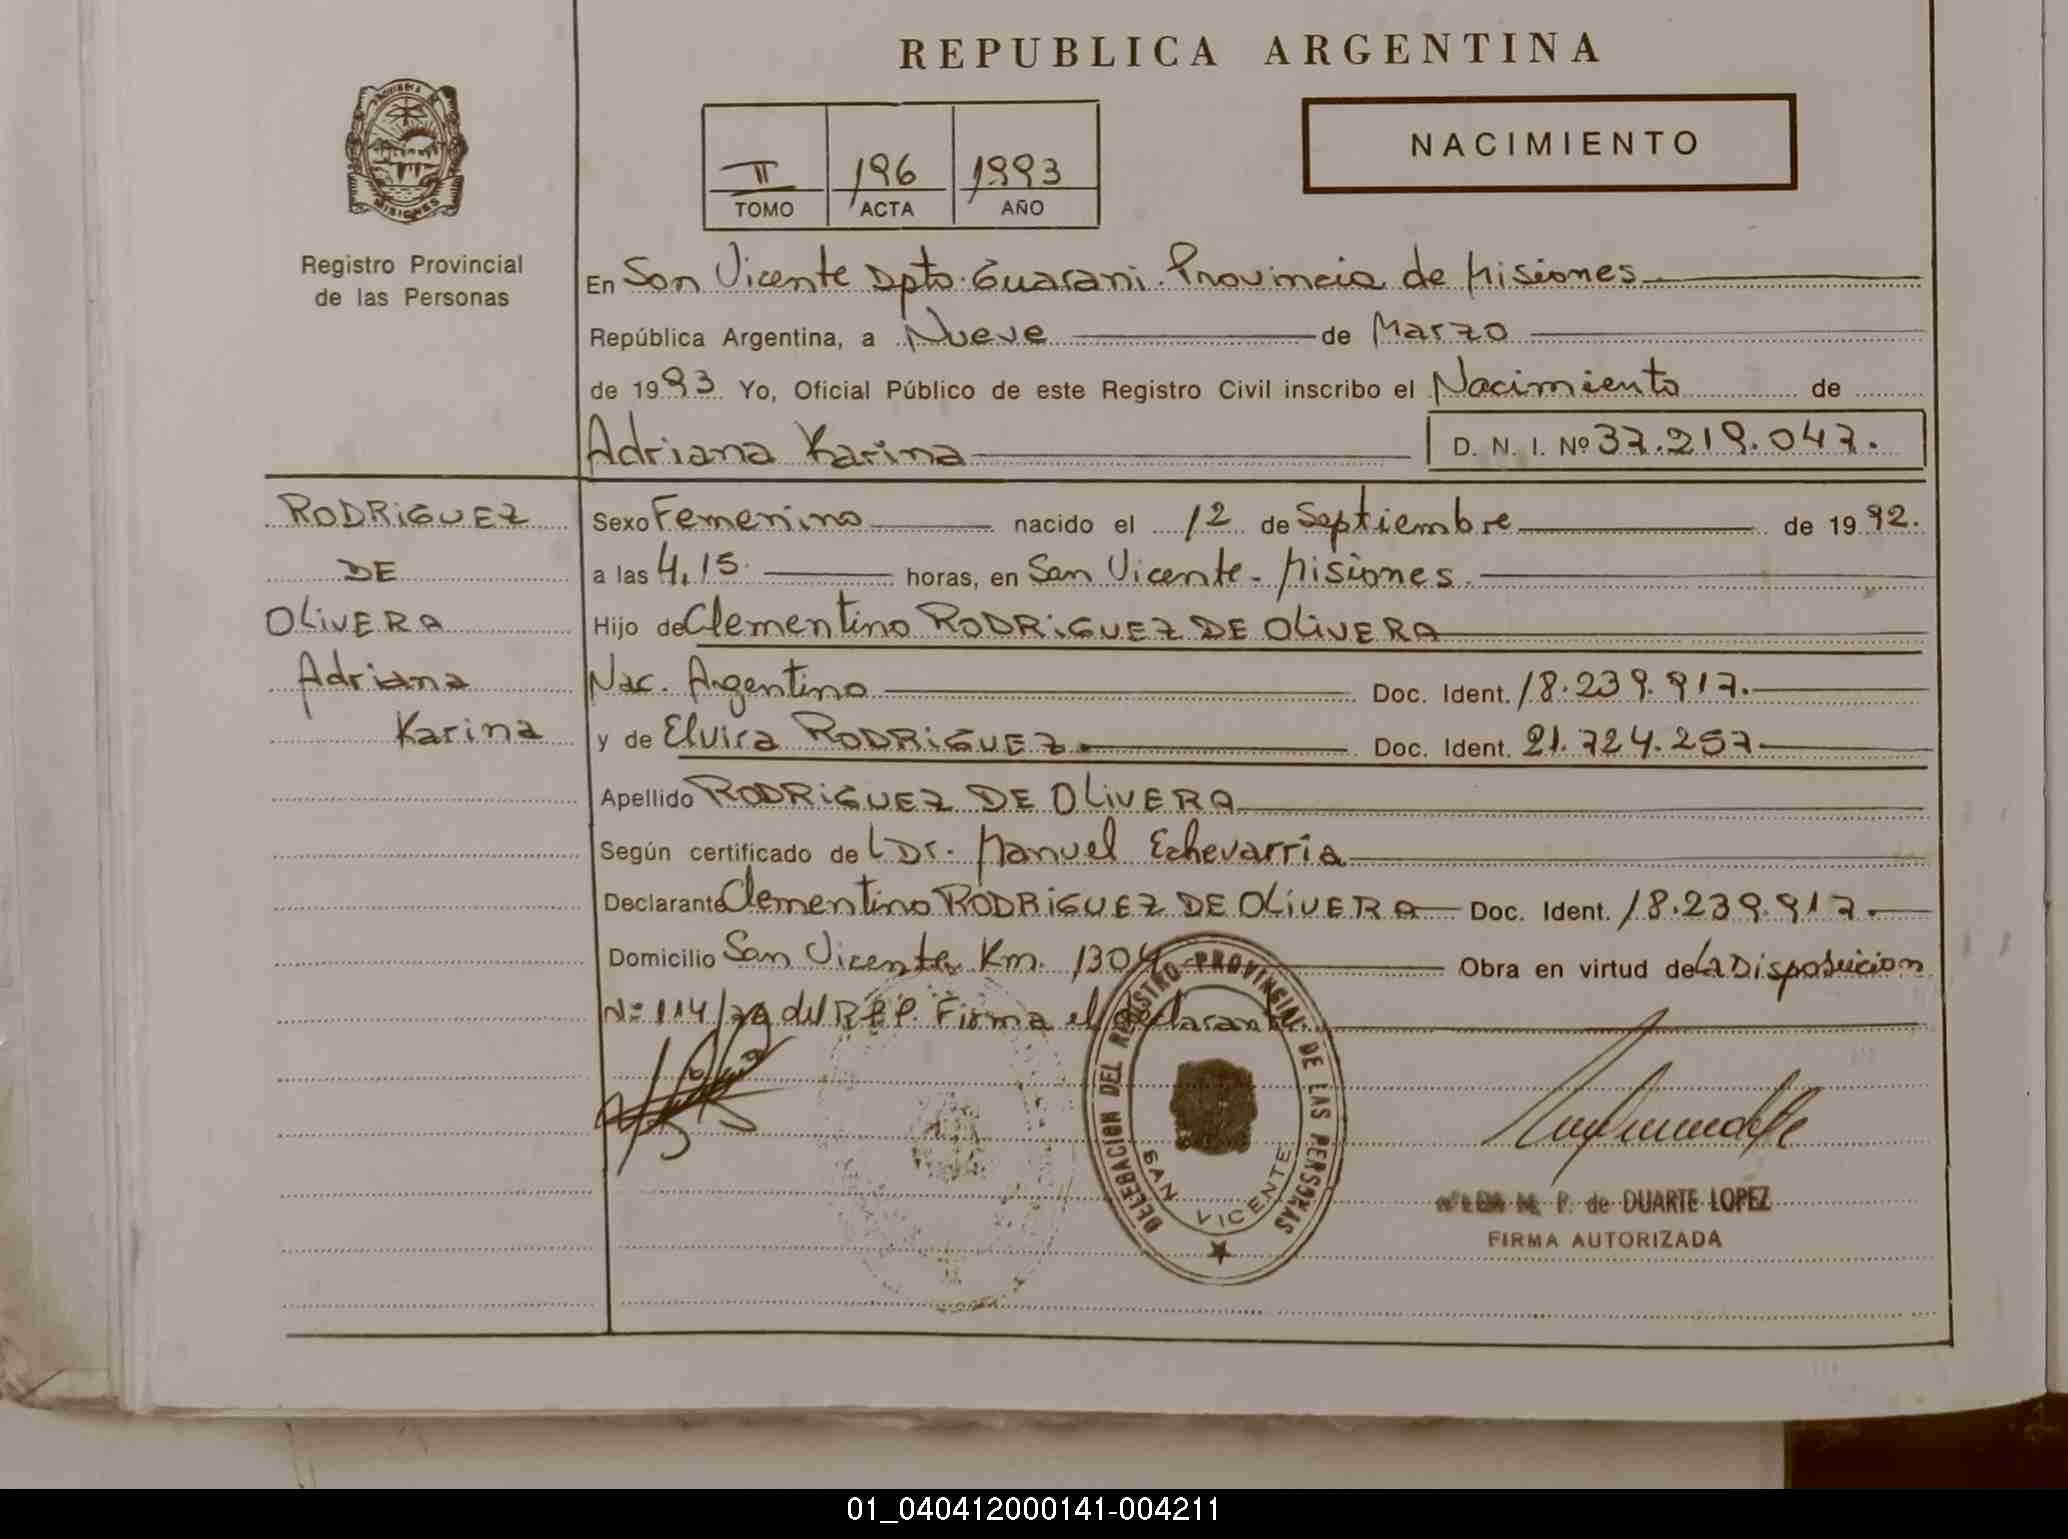 REPUBLICA ARGENTINA
NACIMIENTO
II 196 1993
TOMO ACTA AÑO
MISIONES
Registro Provincial
de las Personas
En San Vicente Dpto. Guarani. Provincia de Misiones
República Argentina, a Nueve de Marzo
de 1993 Yo, Oficial Público de este Registro Civil inscribo el Nacimiento de
Adriana Karina D. N. I. Nº 37.219.047.
RODRiGUEZ
DE
OLiVERA
Adriana
Karina
Sexo Femenino nacido el 12 de Septiembre de 1992.
a las 4,15. horas, en San Vicente - Misiones.
Hijo de Clementino RODRiGUEZ DE OLiVERA
Nac. Argentino Doc. Ident. 18.239.917.
y de Elvira RODRiGUEZ. Doc. Ident. 21.724.257
Apellido RODRiGUEZ DE OLiVERA
Según certificado de L Dr. Manuel Echevarria
Declarante Clementino RODRiGUEZ DE OLiVERA Doc. Ident. 18.239.917.
Domicilio San Vicente Km. 1304 Obra en virtud de La Disposicion
Nº 114/ del R.P.P. Firma el declarante.
DELEGACION DEL REGISTRO PROVINCIAL DE LAS PERSONAS
SAN VICENTE
P. de DUARTE LOPEZ
FIRMA AUTORIZADA
01_040412000141-004211